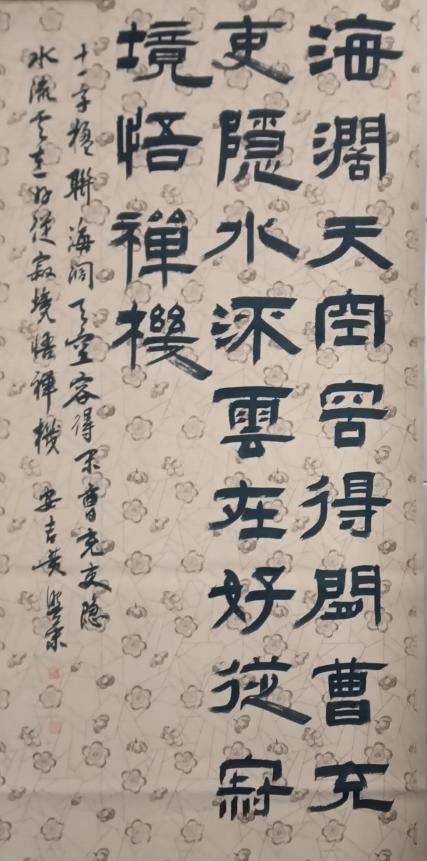 海濶天空容得閒曹充
吏隱水流雲在好從寂
境悟禪機
十一字楹聯海闊天空容得閒曹充吏隐
水流雲在好從寂境悟禪機 安吉黄